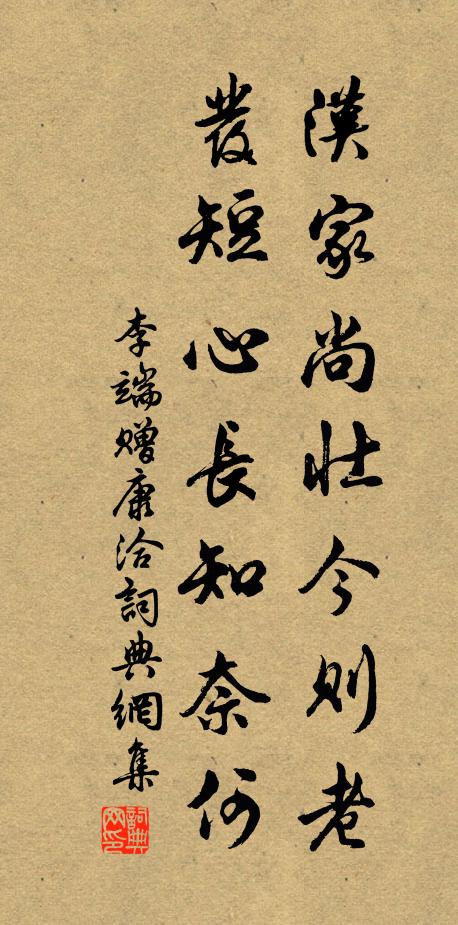 漢家尚壯今則老
發短心長知奈何
李端贈康洽詞典網集
詞典網印